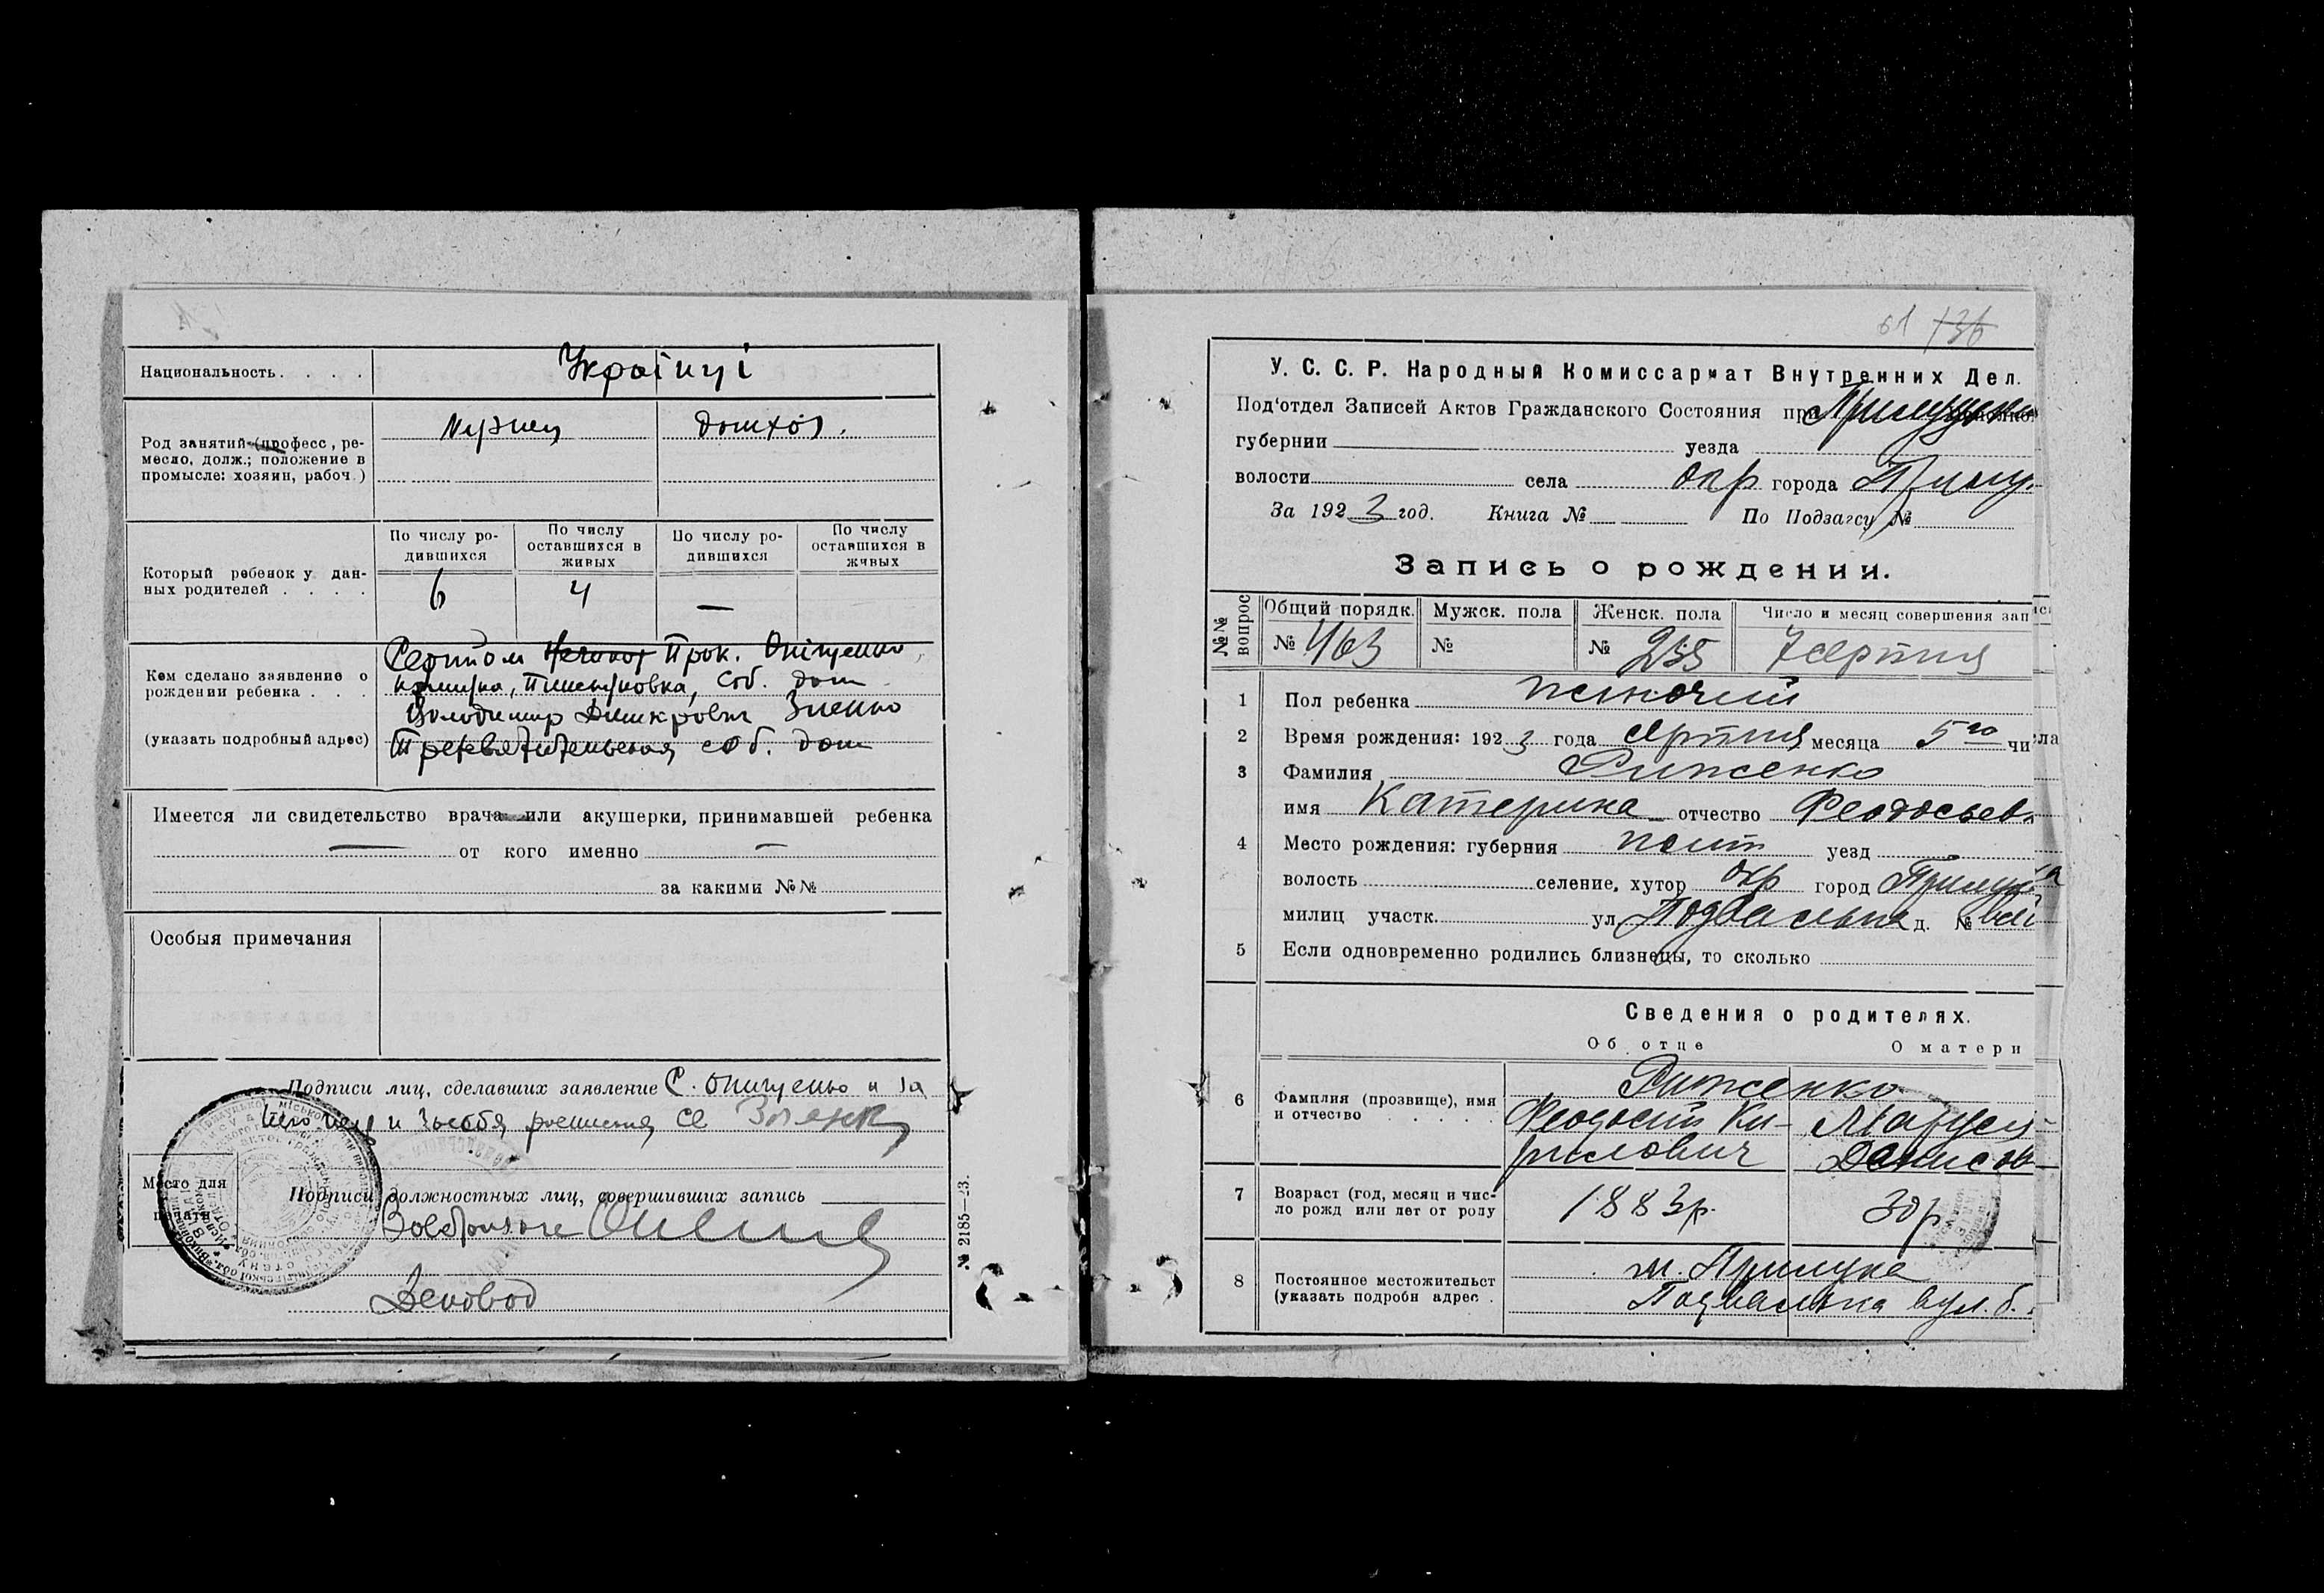 Национальность. . . . Українці
Род занятий (професс, ре-
месло, долж.; положение в
промысле: хозяин, рабоч.)
домхоз.
По числу ро-
дившихся
По числу
оставшихся в
живых
По числу ро-
дившихся
По числу
оставшихся в
живых
Который ребенок у дан-
ных родителей . . . .
6 4 —
Кем сделано заявление о
рождении ребенка . . .
(указать подробный адрес)
Прок. Оніщенко
соб. дом
Володимир Зиенко
соб. дом
Имеется ли свидетельство врача или акушерки, принимавшей ребенка
— от кого именно —
за какими №№
Особыя примечания
Подписи лиц, сделавших заявление С. Онищенко и за
и
Место для
печати
Подписи должностных лиц, совершивших запись
Деловод
№ 2185—23.
61 136
У. С. С. Р. Народный Комиссариат Внутренних Дел.
Под'отдел Записей Актов Гражданского Состояния при
губернии уезда
волости села окр города Прилу
За 1923 год. Книга № По Подзагсу №
Запись о рождении.
№№ вопрос
Общий порядк. Мужск. пола Женск. пола Число и месяц совершения зап
№ 463 № № 255 7 серпня
1 Пол ребенка жіночий
2 Время рождения: 1923 года серпня месяца 5го числа
3 Фамилия Риженко
имя Катерина отчество Феодосьев
4 Место рождения: губерния уезд
волость селение, хутор окр город Прилука
милиц участк. ул. Подвальна д. №
5 Если одновременно родились близнецы, то сколько
Сведения о родителях.
Об отце О матери
6 Фамилия (прозвище), имя
и отчество . . . .
Риженко
Феодосий Ки-
рилович
Маруся
Денисов
7 Возраст (год, месяц и чис-
ло рожд или лет от роду
1883р. 30 р
8 Постоянное местожительст
(указать подробн адрес .
м. Прилука
Подвальна вул. б.